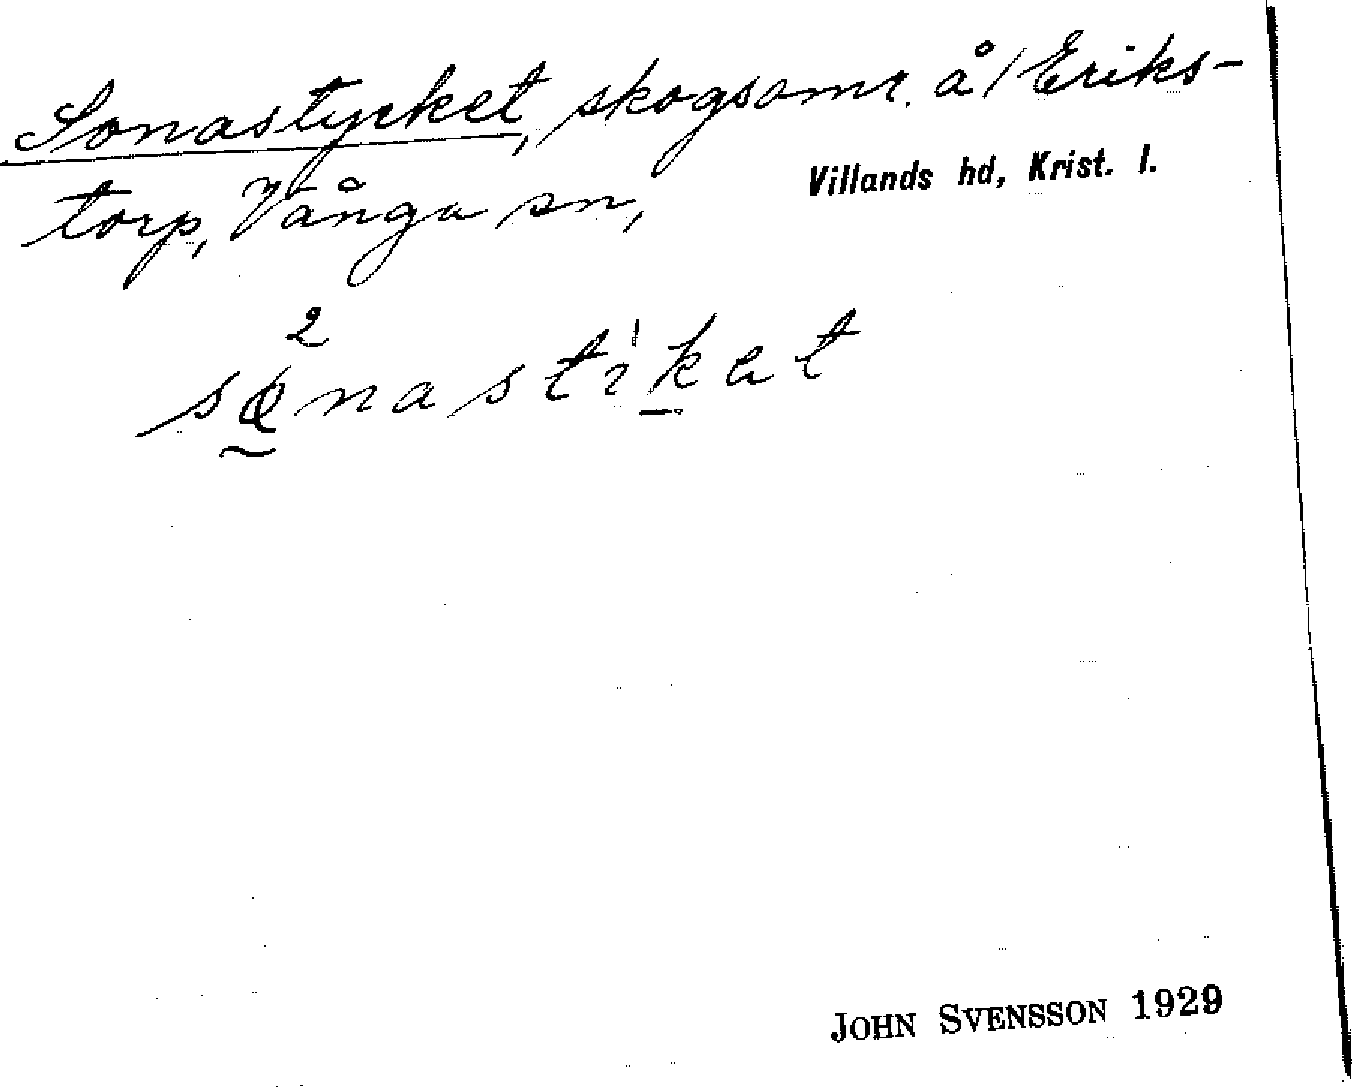 Sonastycket, skogsomr. å/Eriks-
torp, Vånga sn,
Villands hd, Krist. l.
JOHN SVENSSON 1929